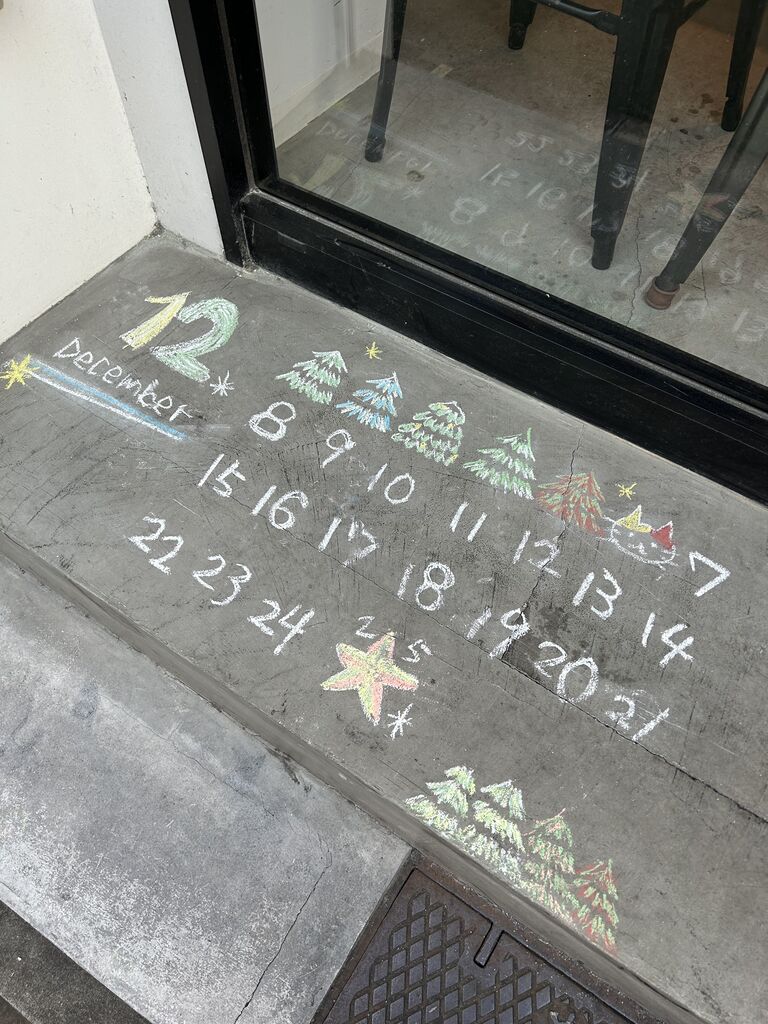 12
December
7
8 9 10 11 12 13 14
15 16 17 18 19 20 21
22 23 24 25